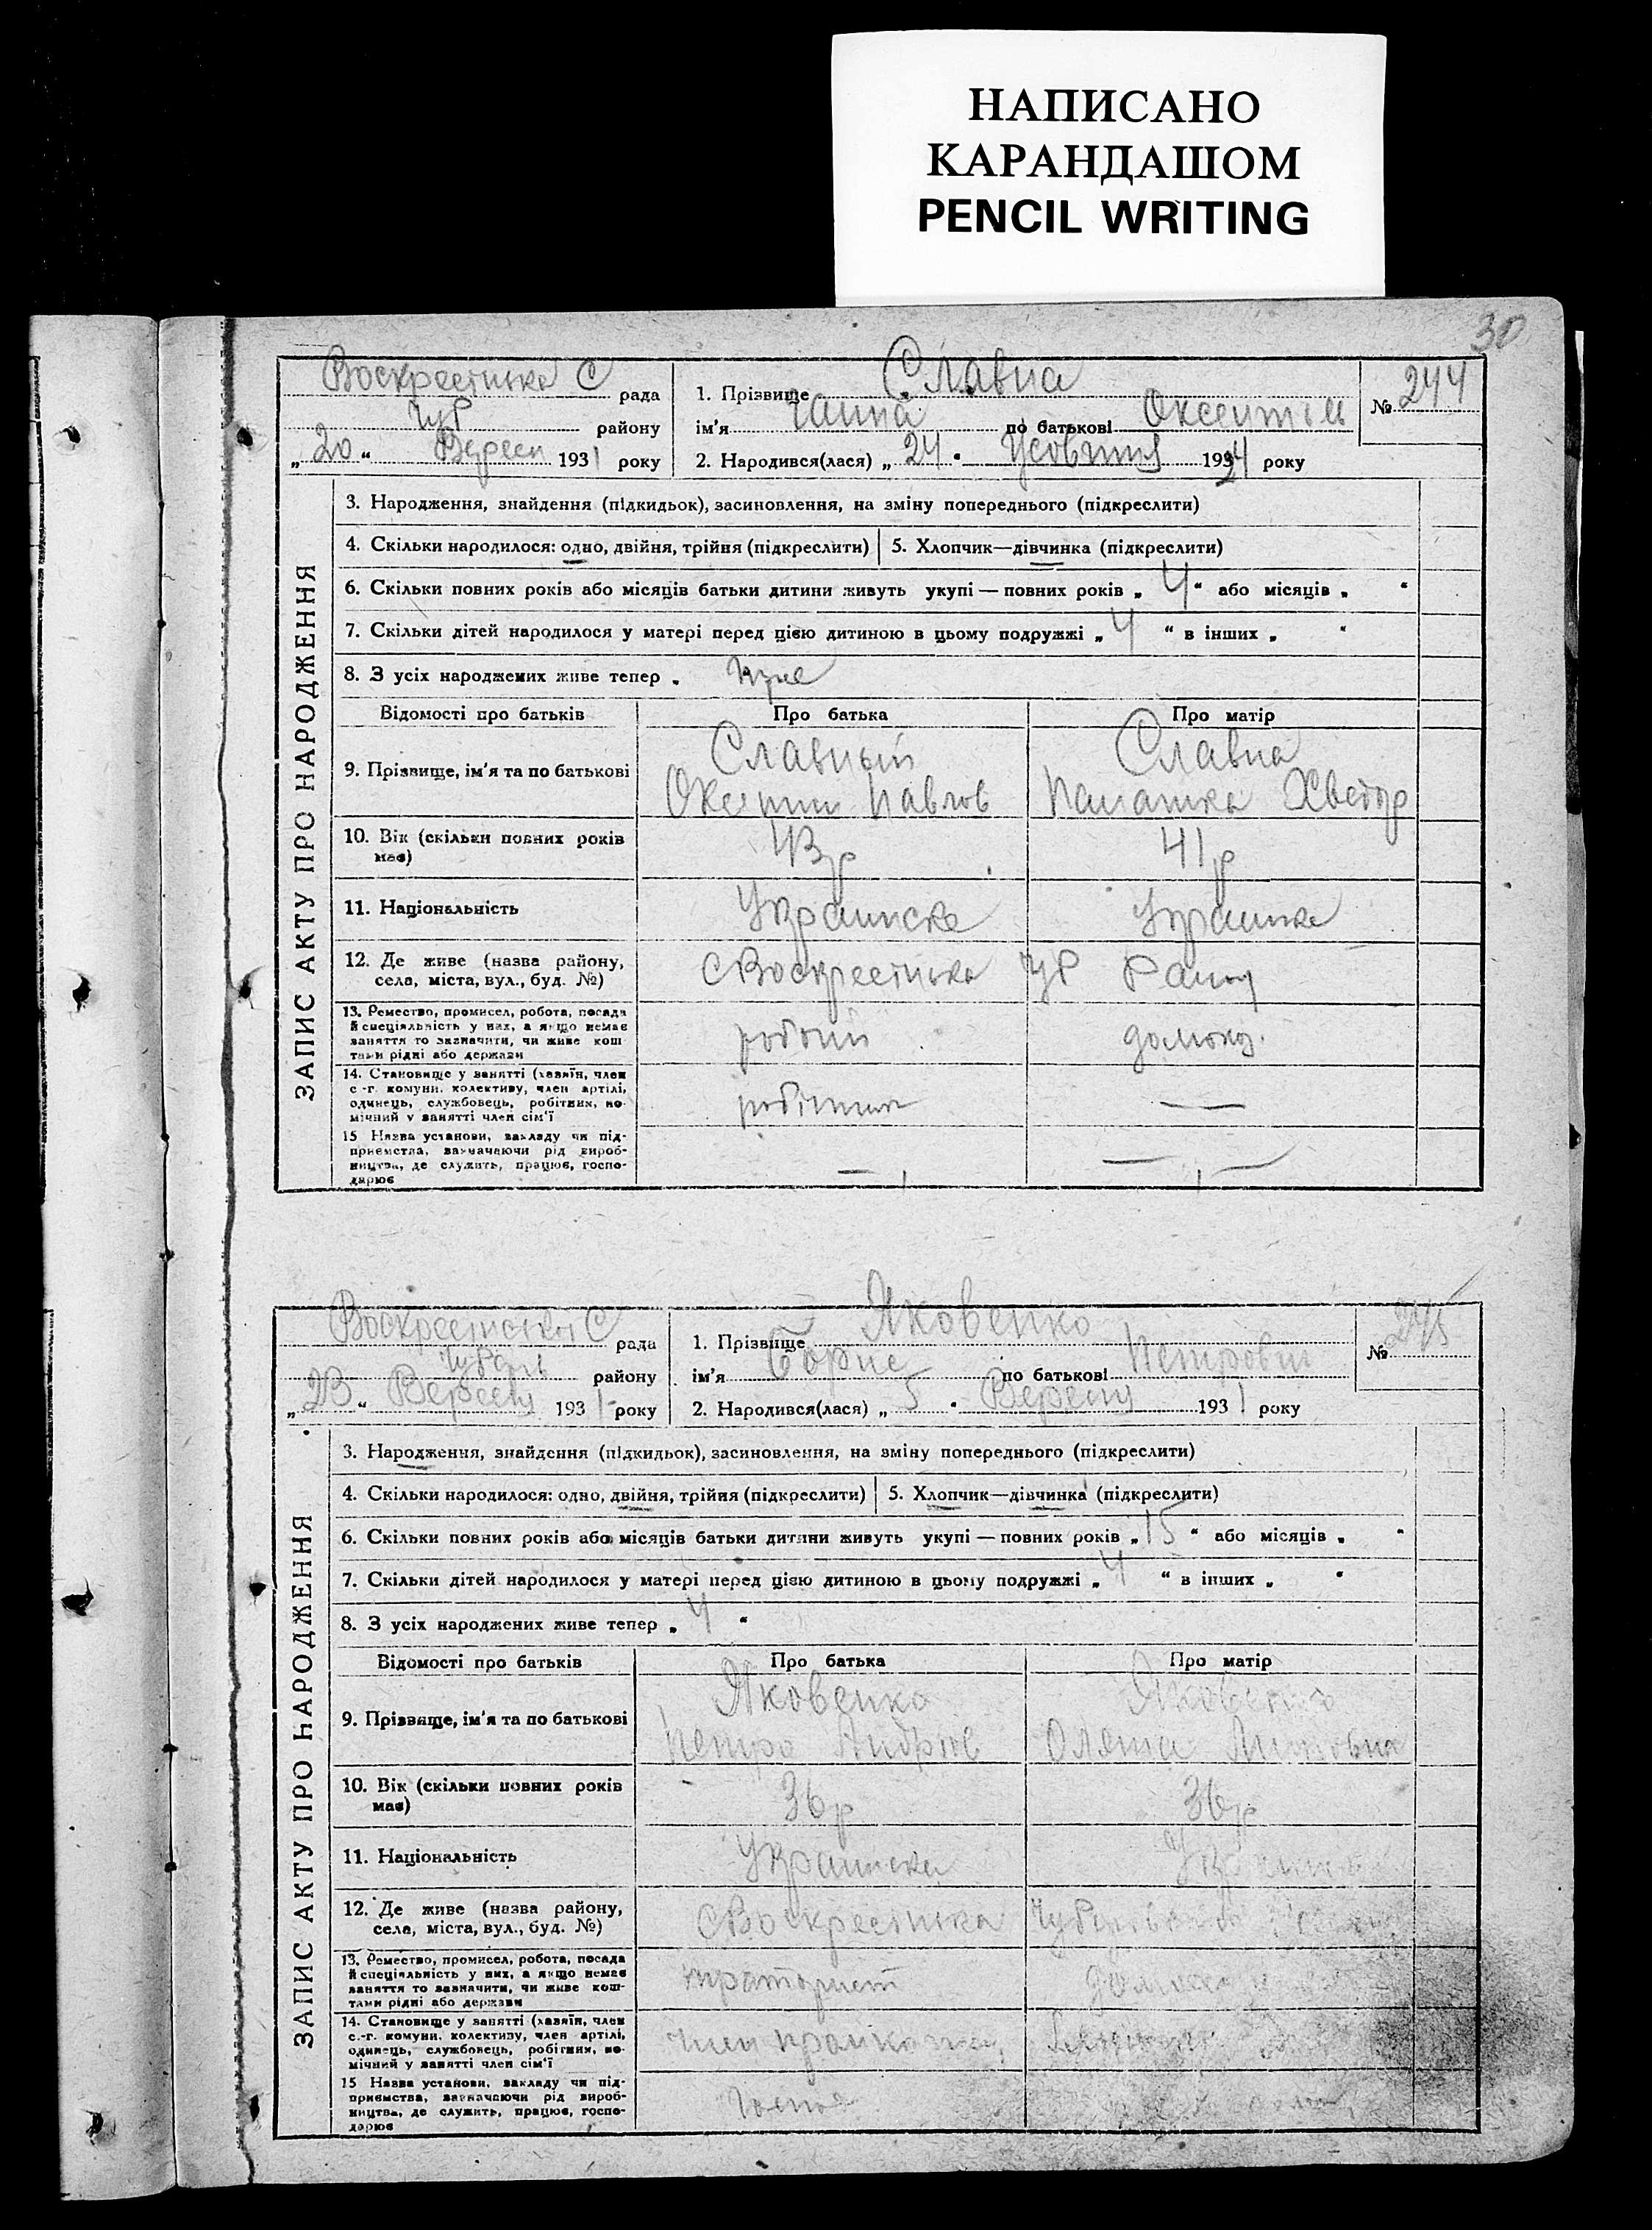 НАПИСАНО
КАРАНДАШОМ
PENCIL WRITING
30
ЗАПИС АКТУ ПРО НАРОДЖЕННЯ
Воскресенська С рада
ЧР району
„20“ Вересн 1931 року
1. Прізвище Славна
ім'я Ганна по батькові Оксентім
2. Народився(лася) „24“ 193 року
№ 244
3. Народження, знайдення (підкидьок), засиновлення, на зміну попереднього (підкреслити)
4. Скільки народилося: одно, двійня, трійня (підкреслити) 5. Хлопчик—дівчинка (підкреслити)
6. Скільки повних років або місяців батьки дитини живуть укупі — повних років „4“ або місяців „ “
7. Скільки дітей народилося у матері перед цією дитиною в цьому подружжі „4“ в інших „ “
8. З усіх народжених живе тепер „
Відомості про батьків Про батька Про матір
9. Прізвище, ім'я та по батькові
Славный Славна
Павлов Палашка Хведор
10. Вік (скільки повних років має) 43р 41р
11. Національність Украинске Украинка
12. Де живе (назва району, села, міста, вул., буд. №)
С Воскресенька ЧР Раину
13. Ремество, промисел, робота, посада й спеціяльність у них, а якщо немає заняття то зазначити, чи живе коштами рідні або держави
робочий домохоз.
14. Становище у занятті (хазяїн, член с.-г. комуни, колективу, член артілі, одинець, службовець, робітник, помічний у занятті член сім'ї
робітник —
15 Назва установи, закладу чи підприємства, зазначаючи рід виробництва, де служить, працює, господарює
— —
ЗАПИС АКТУ ПРО НАРОДЖЕННЯ
Воскресенська С рада
району
„23“ Вересня 1931 року
1. Прізвище Яковенко
ім'я Борис по батькові Петрович
2. Народився(лася) „5“ Вересня 1931 року
№ 245
3. Народження, знайдення (підкидьок), засиновлення, на зміну попереднього (підкреслити)
4. Скільки народилося: одно, двійня, трійня (підкреслити) 5. Хлопчик—дівчинка (підкреслити)
6. Скільки повних років або місяців батьки дитини живуть укупі — повних років „15“ або місяців „ “
7. Скільки дітей народилося у матері перед цією дитиною в цьому подружжі „4“ в інших „ “
8. З усіх народжених живе тепер „4“
Відомості про батьків Про батька Про матір
9. Прізвище, ім'я та по батькові
Яковенко Яковенко
Петро Андріев Оляна
10. Вік (скільки повних років має) 36р 36р
11. Національність Украинска
12. Де живе (назва району, села, міста, вул., буд. №)
С Воскресенька
13. Ремество, промисел, робота, посада й спеціяльність у них, а якщо немає заняття то зазначити, чи живе коштами рідні або держави
тракторист
14. Становище у занятті (хазяїн, член с.-г. комуни, колективу, член артілі, одинець, службовець, робітник, помічний у занятті член сім'ї
член
15 Назва установи, закладу чи підприємства, зазначаючи рід виробництва, де служить, працює, господарює